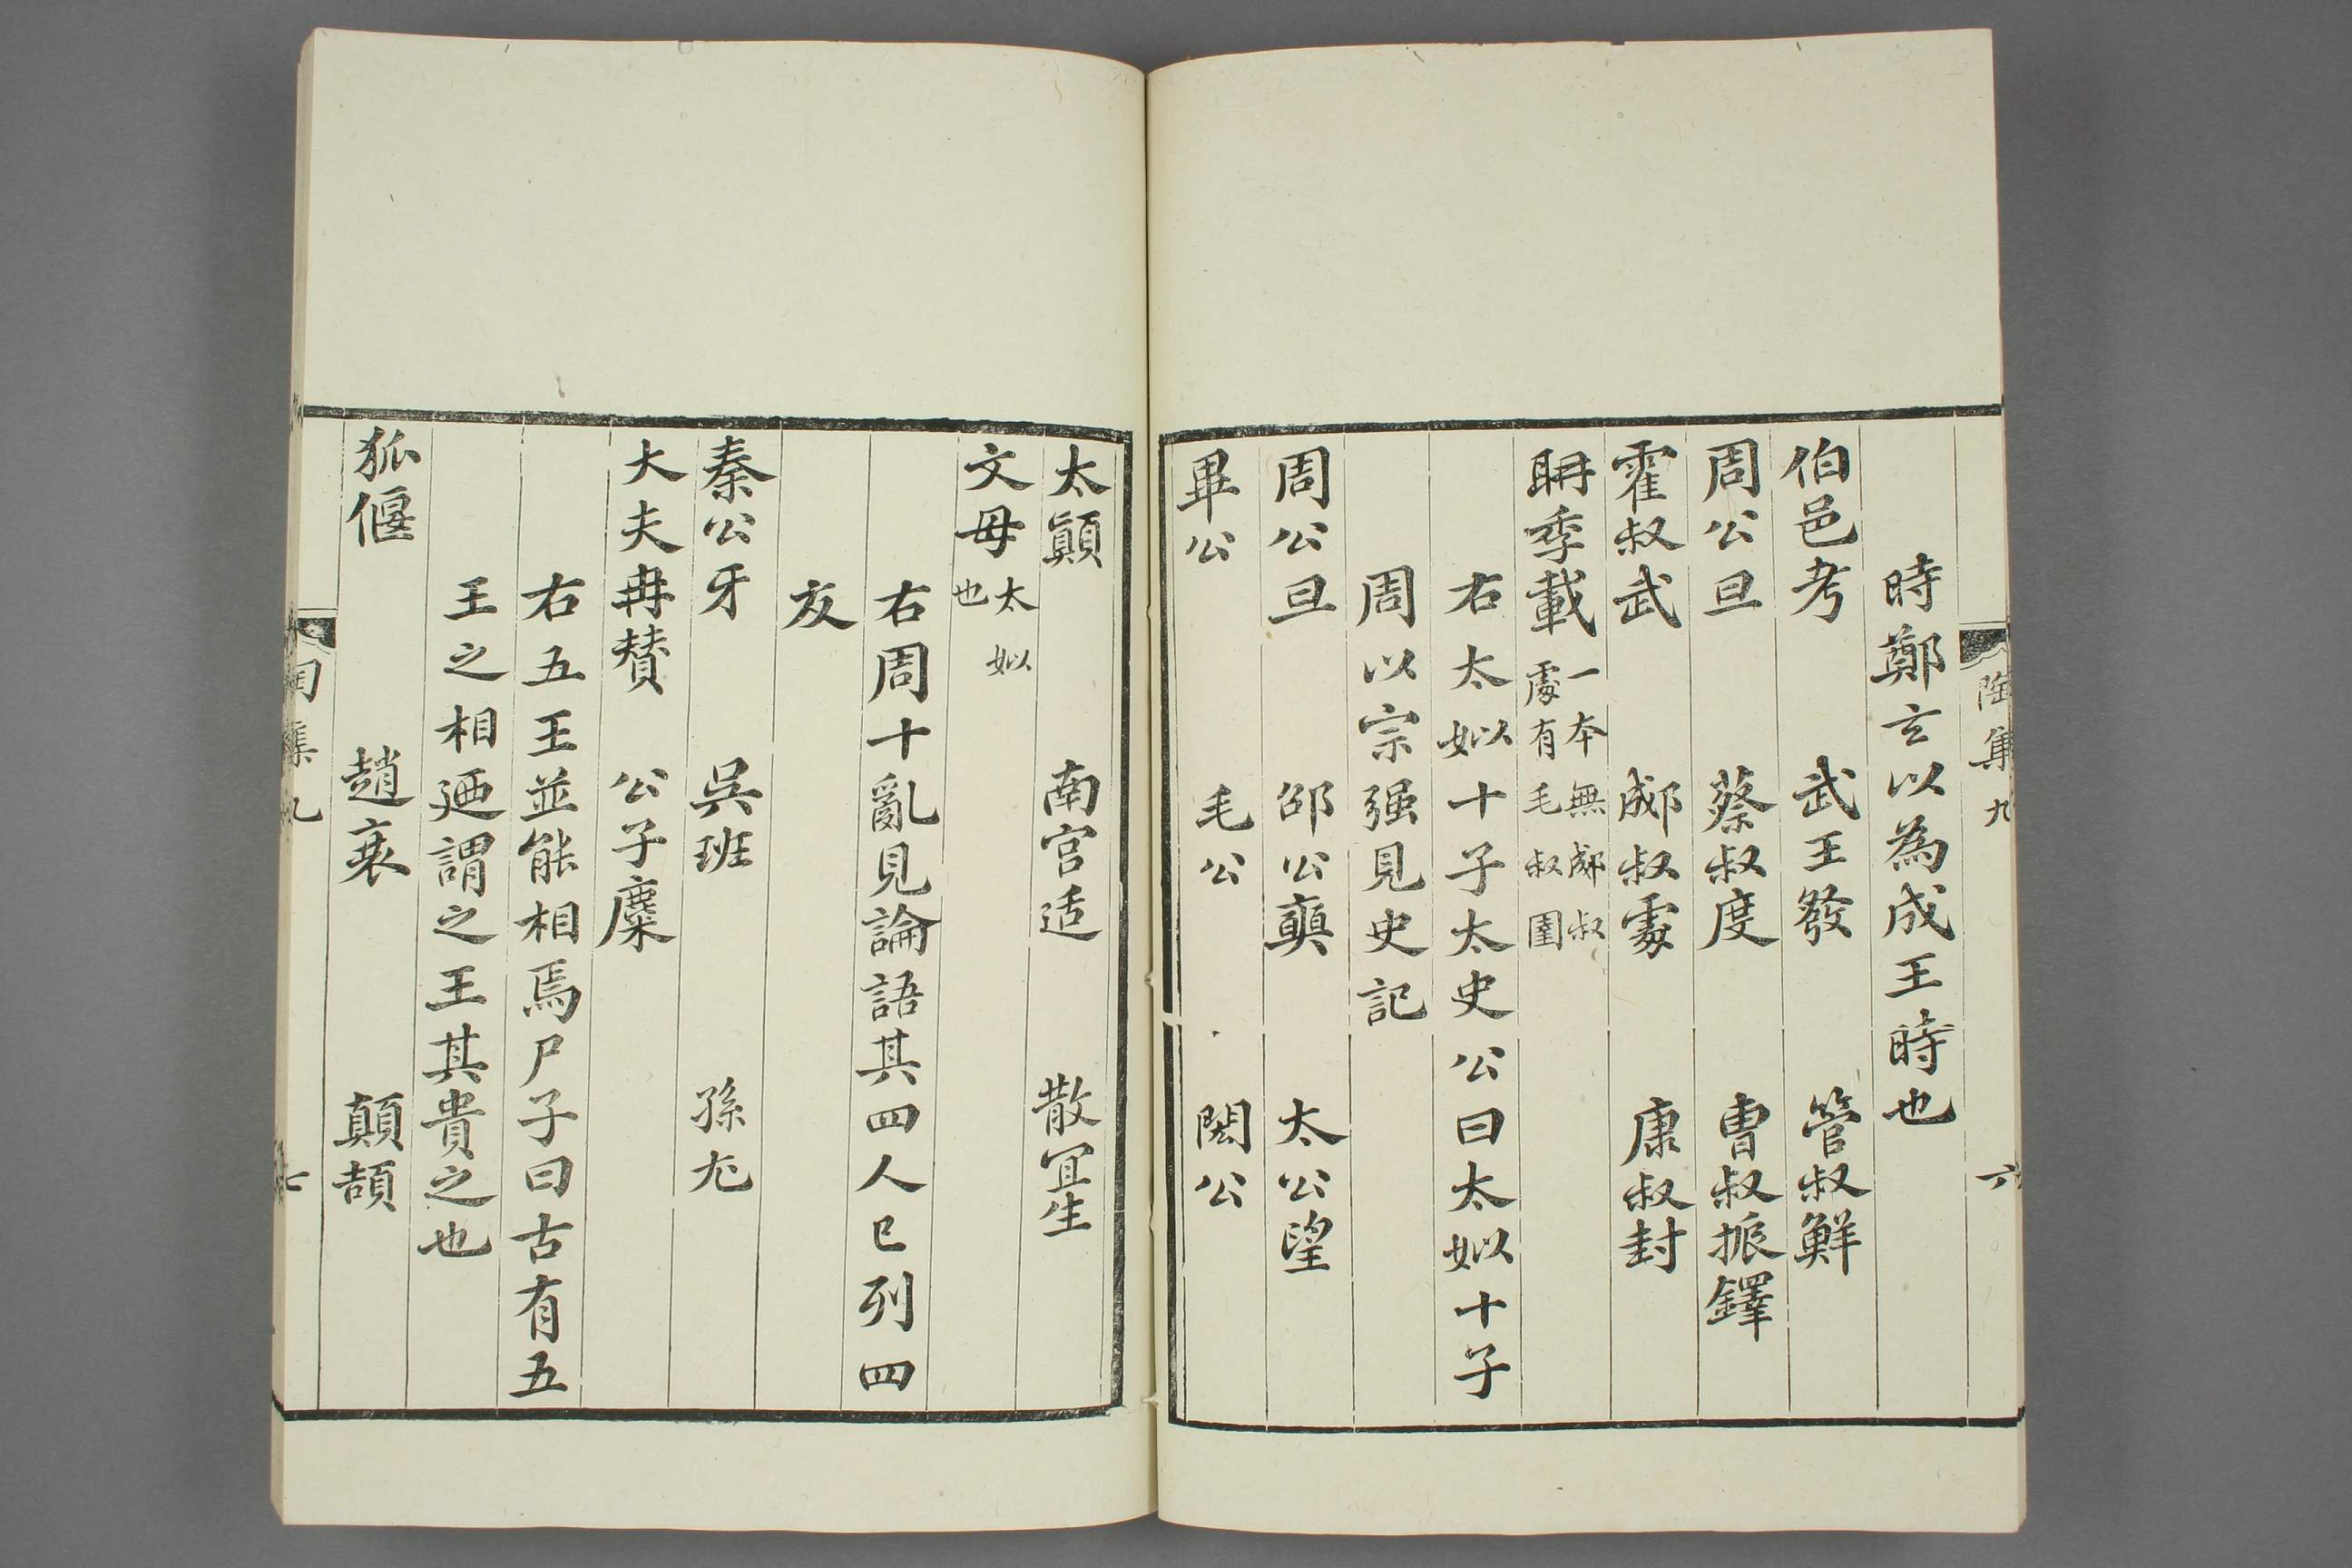 陶集九
六
時鄭玄以為成王時也
伯邑考　武王發　管叔鮮
周公旦　蔡叔度　曹叔振鐸
霍叔武　郕叔霱　康叔封
聃季載 一本無郕叔霱有毛叔圉
右太姒十子太史公曰太姒十子
周以宗强見史記
周公旦　邵公奭　太公望
畢公　毛公　閎公
太顛　南宫适　散宜生
文母 太姒也
右周十亂見論語其四人已列四
友
秦公牙　吳班　孫尤
大夫冉贊　公子麋
右五王並能相焉尸子曰古有五
王之相迺謂之王其貴之也
狐偃　趙衰　顛頡
陶集九
七